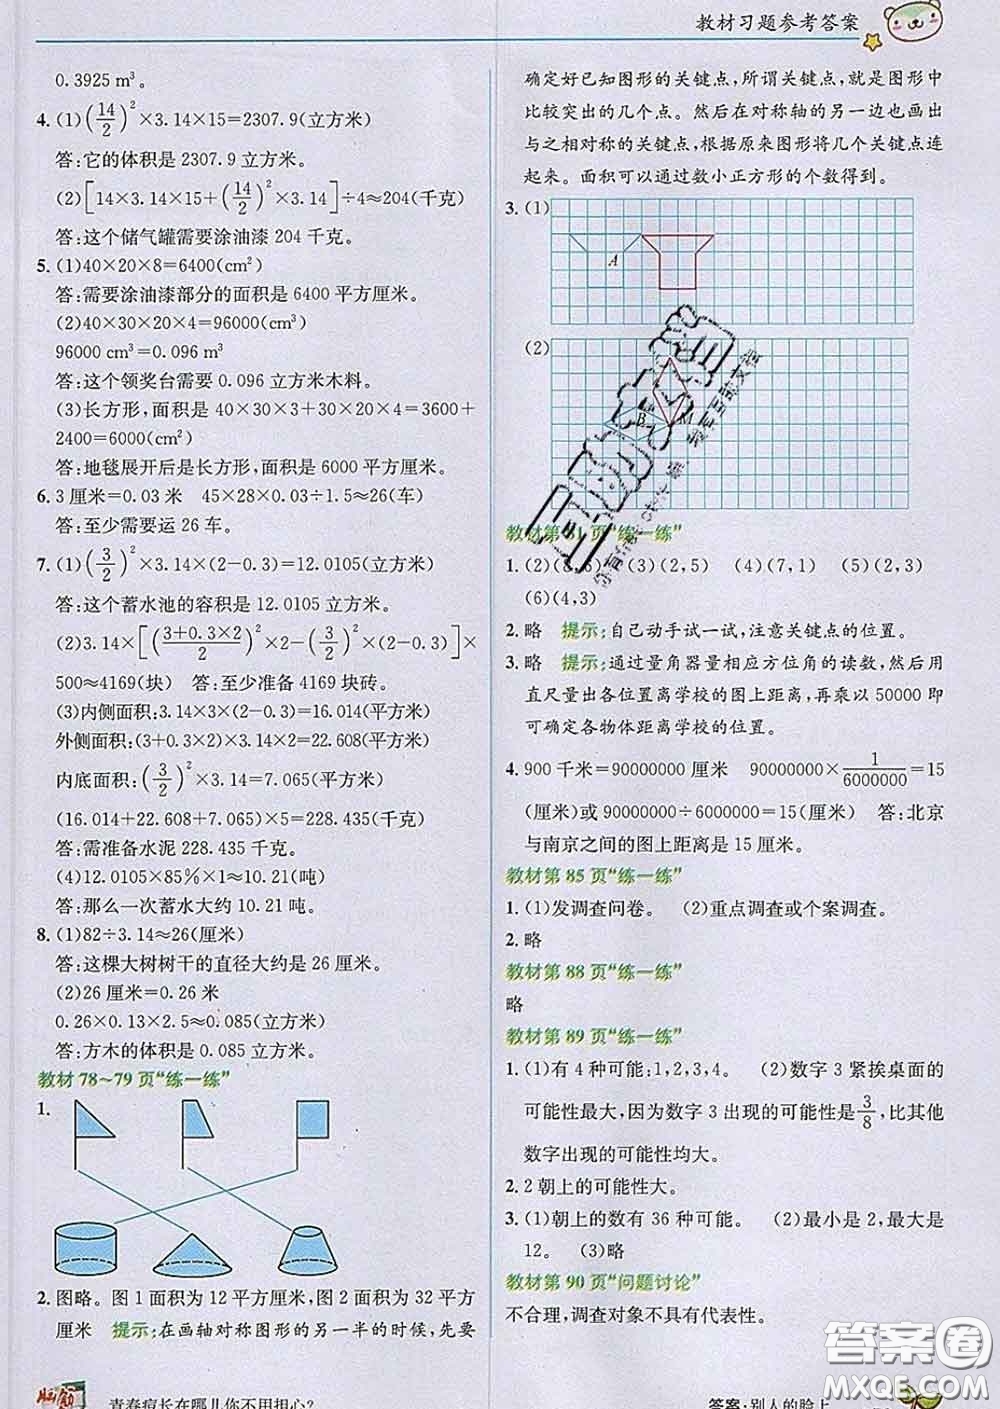 教材习题参考答案
0.3925 m³。
4. (1)(14/2)²×3.14×15=2307.9(立方米)
答:它的体积是 2307.9 立方米。
(2)[14×3.14×15+(14/2)²×3.14]÷4≈204(千克)
答:这个储气罐需要涂油漆 204 千克。
5. (1)40×20×8=6400(cm²)
答:需要涂油漆部分的面积是 6400 平方厘米。
(2)40×30×20×4=96000(cm³)
96000 cm³=0.096 m³
答:这个领奖台需要 0.096 立方米木料。
(3)长方形,面积是 40×30×3+30×20×4=3600+
2400=6000(cm²)
答:地毯展开后是长方形,面积是 6000 平方厘米。
6. 3 厘米=0.03 米 45×28×0.03÷1.5≈26(车)
答:至少需要运 26 车。
7. (1)(3/2)²×3.14×(2−0.3)=12.0105(立方米)
答:这个蓄水池的容积是 12.0105 立方米。
(2)3.14×[((3+0.3×2)/2)²×2−(3/2)²×(2−0.3)]×
500≈4169(块) 答:至少准备 4169 块砖。
(3)内侧面积:3.14×3×(2−0.3)=16.014(平方米)
外侧面积:(3+0.3×2)×3.14×2=22.608(平方米)
内底面积:(3/2)²×3.14=7.065(平方米)
(16.014+22.608+7.065)×5=228.435(千克)
答:需准备水泥 228.435 千克。
(4)12.0105×85%×1≈10.21(吨)
答:那么一次蓄水大约 10.21 吨。
8. (1)82÷3.14≈26(厘米)
答:这棵大树树干的直径大约是 26 厘米。
(2)26 厘米=0.26 米
0.26×0.13×2.5≈0.085(立方米)
答:方木的体积是 0.085 立方米。
教材 78~79 页“练一练”
1.
2. 图略。图 1 面积为 12 平方厘米,图 2 面积为 32 平方
厘米 提示:在画轴对称图形的另一半的时候,先要
确定好已知图形的关键点,所谓关键点,就是图形中
比较突出的几个点。然后在对称轴的另一边也画出
与之相对称的关键点,根据原来图形将几个关键点连
起来。面积可以通过数小正方形的个数得到。
3. (1)
A
(2)
B
M
教材第 81 页“练一练”
1. (2)(8,6) (3)(2,5) (4)(7,1) (5)(2,3)
(6)(4,3)
2. 略 提示:自己动手试一试,注意关键点的位置。
3. 略 提示:通过量角器量相应方位角的读数,然后用
直尺量出各位置离学校的图上距离,再乘以 50000 即
可确定各物体距离学校的位置。
4. 900 千米=90000000 厘米 90000000×1/6000000=15
(厘米)或 90000000÷6000000=15(厘米) 答:北京
与南京之间的图上距离是 15 厘米。
教材第 85 页“练一练”
1. (1)发调查问卷。 (2)重点调查或个案调查。
2. 略
教材第 88 页“练一练”
略
教材第 89 页“练一练”
1. (1)有 4 种可能:1,2,3,4。 (2)数字 3 紧挨桌面的
可能性最大,因为数字 3 出现的可能性是3/8,比其他
数字出现的可能性均大。
2. 2 朝上的可能性大。
3. (1)朝上的数有 36 种可能。 (2)最小是 2,最大是
12。 (3)略
教材第 90 页“问题讨论”
不合理,调查对象不具有代表性。
脑筋
青春痘长在哪儿你不用担心?
答案:别人的脸上
答案圈
MXQE.COM